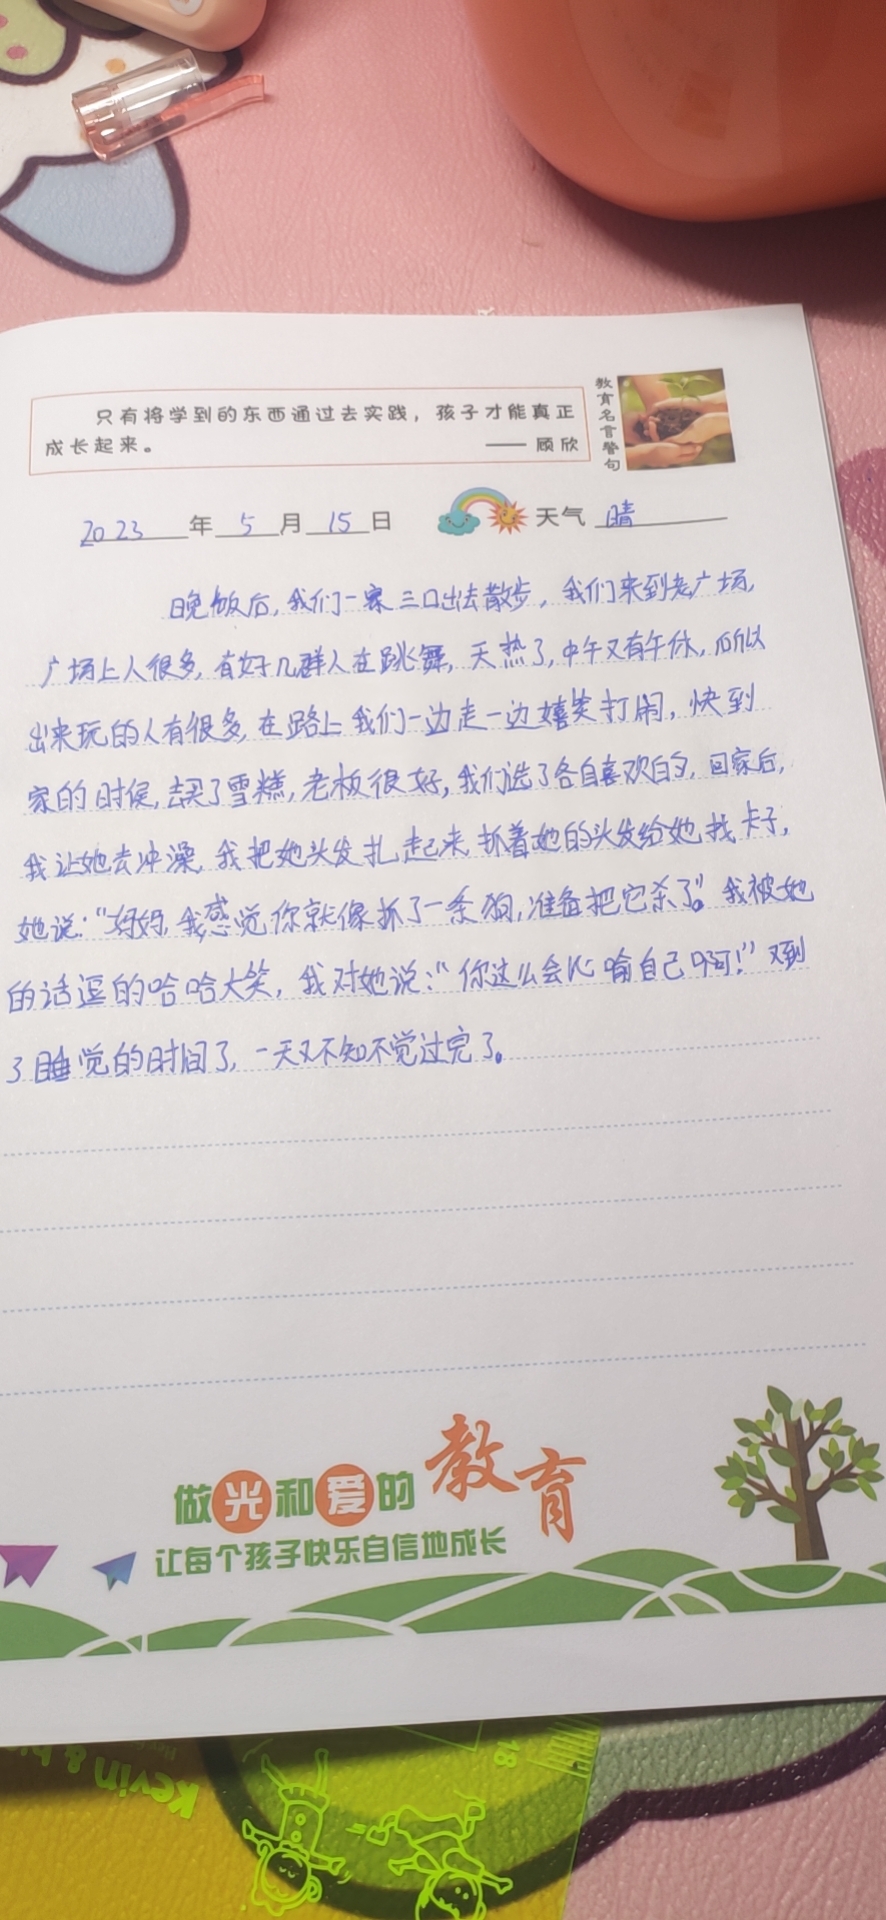 只有将学到的东西通过去实践，孩子才能真正
成长起来。 —— 顾欣
教育名言警句
2023年5月15日 天气 晴
晚饭后，我们一家三口出去散步，我们来到老广场，
广场上人很多，有好几群人在跳舞，天热了，中午又有午休，所以
出来玩的人有很多，在路上我们一边走一边嬉笑打闹，快到
家的时侯，去买了雪糕，老板很好，我们选了各自喜欢的，回家后，
我让她去冲澡，我把她头发扎起来，抓着她的头发给她找卡子，
她说：“妈妈，我感觉你就像抓了一条狗，准备把它杀了。”我被她
的话逗的哈哈大笑，我对她说：“你这么会比喻自己啊！”又到
了睡觉的时间了，一天又不知不觉过完了。
做光和爱的教育
让每个孩子快乐自信地成长
Kevin &
18